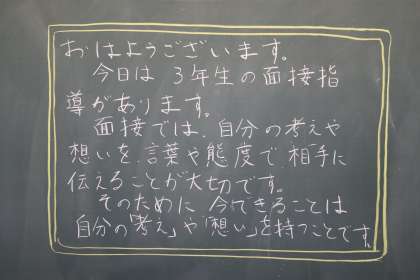 おはようございます。
今日は 3年生の面接指
導があります。
面接では、自分の考えや
想いを、言葉や態度で、相手に
伝えることが大切です。
そのために 今できることは
自分の「考え」や「想い」を持つことです。